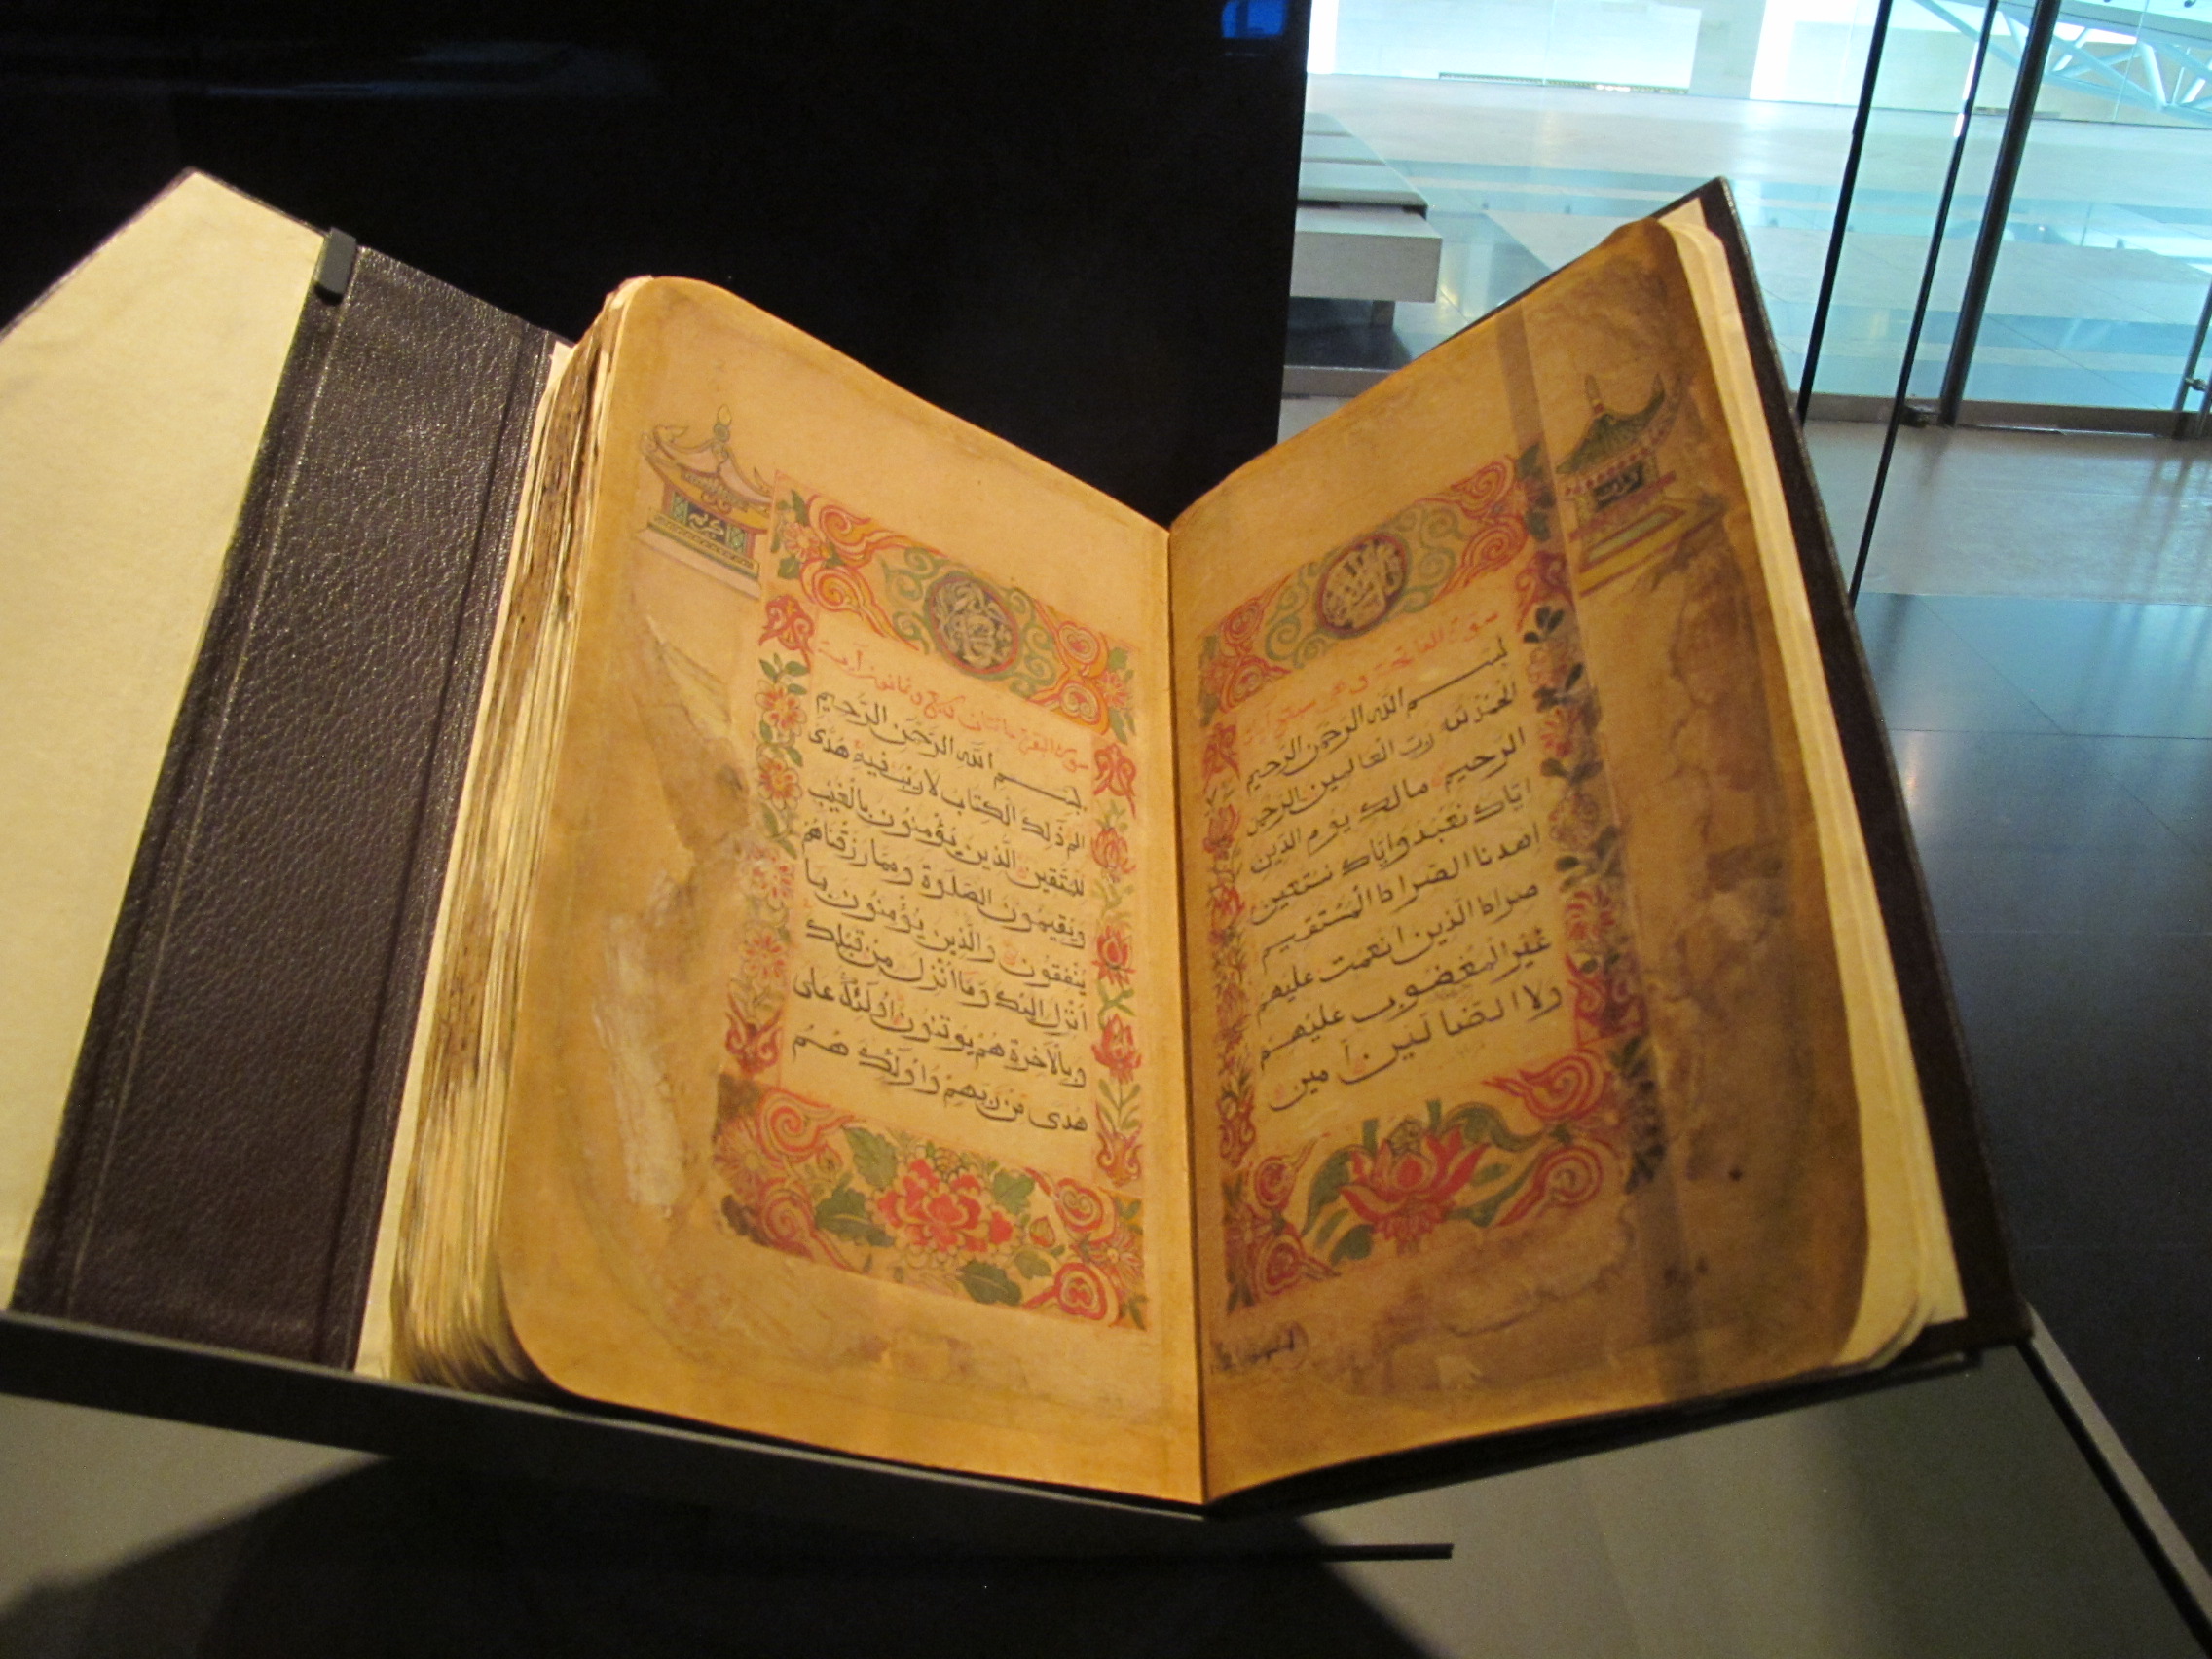 سورة الفاتحة وهى سبع آيات
بسم الله الرحمن الرحيم
الحمد لله رب العالمين الرحمن
الرحيم مالك يوم الدين
اياك نعبد واياك نستعين
اهدنا الصراط المستقيم
صراط الذين انعمت عليهم
غير المغضوب عليهم
ولا الضالين آمين
سورة البقرة مائتان وثمانون آية
بسم الله الرحمن الرحيم
الم ذلك الكتاب لا ريب فيه هدى
للمتقين الذين يؤمنون بالغيب
ويقيمون الصلوة ومما رزقناهم
ينفقون والذين يؤمنون بما
انزل اليك وما انزل من قبلك
وبالآخرة هم يوقنون اولئك على
هدى من ربهم واولئك هم